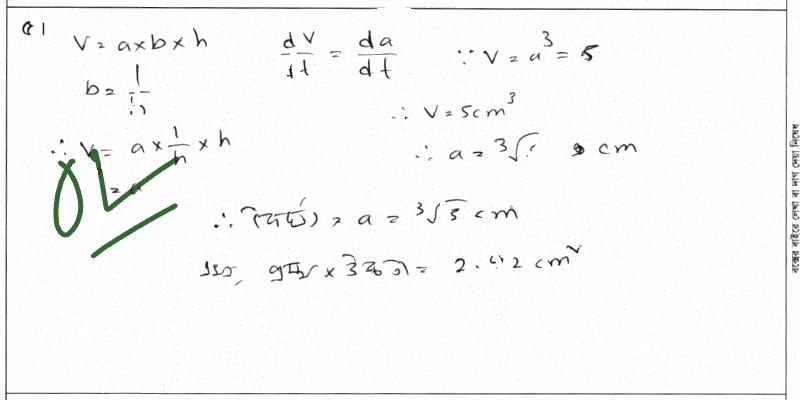 ৫।
V = a×b×h
b =
∴ V = a × 1/h × h
= a
dV/dt = da/dt
∵ V = a³ = 5
∴ V = 5cm³
∴ a = ³√ cm
∴ a = ³√5 cm
= 2. 2 cm²
বক্সের বাইরে লেখা বা দাগ দেয়া নিষেধ